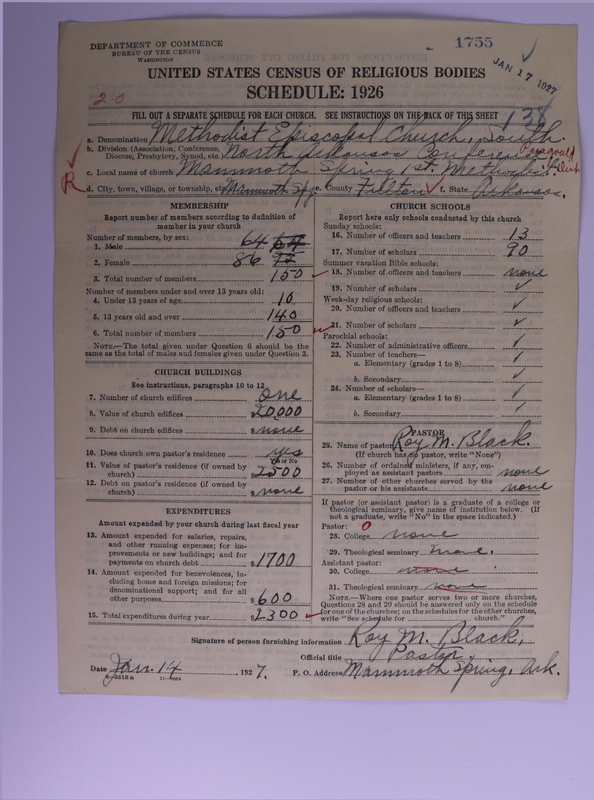 DEPARTMENT OF COMMERCE
BUREAU OF THE CENSUS
WASHINGTON
1755
JAN 17 1927
UNITED STATES CENSUS OF RELIGIOUS BODIES
SCHEDULE: 1926
20
138
FILL OUT A SEPARATE SCHEDULE FOR EACH CHURCH. SEE INSTRUCTIONS ON THE BACK OF THIS SHEET
a. Denomination Methodist Episcopal Church, South.
b. Division (Association, Conference, Diocese, Presbytery, Synod, etc.) North Arkansas Conference
Paragould Dist
c. Local name of church Mammoth Spring 1st. Methodist
R
d. City, town, village, or township, etc. Mammoth Spg. e. County Fulton f. State Arkansas.
MEMBERSHIP
Report number of members according to definition of member in your church
Number of members, by sex:
1. Male 64
2. Female 86
3. Total number of members 150
Number of members under and over 13 years old:
4. Under 13 years of age 10
5. 13 years old and over 140
6. Total number of members 150
NOTE.—The total given under Question 6 should be the same as the total of males and females given under Question 3.
CHURCH BUILDINGS
See instructions, paragraphs 10 to 12
7. Number of church edifices one
8. Value of church edifices $20,000
9. Debt on church edifices $none
10. Does church own pastor's residence yes
Yes or No
11. Value of pastor's residence (if owned by church) $2500
12. Debt on pastor's residence (if owned by church) $none
EXPENDITURES
Amount expended by your church during last fiscal year
13. Amount expended for salaries, repairs, and other running expenses; for improvements or new buildings; and for payments on church debt $1700
14. Amount expended for benevolences, including home and foreign missions; for denominational support; and for all other purposes $600
15. Total expenditures during year $2300
CHURCH SCHOOLS
Report here only schools conducted by this church
Sunday schools:
16. Number of officers and teachers 13
17. Number of scholars 90
Summer vacation Bible schools:
18. Number of officers and teachers none
19. Number of scholars ✓
Week-day religious schools:
20. Number of officers and teachers ✓
21. Number of scholars ✓
Parochial schools:
22. Number of administrative officers ✓
23. Number of teachers—
a. Elementary (grades 1 to 8) ✓
b. Secondary ✓
24. Number of scholars—
a. Elementary (grades 1 to 8) ✓
b. Secondary ✓
PASTOR
25. Name of pastor Roy M. Black.
(If church has no pastor, write "None")
26. Number of ordained ministers, if any, employed as assistant pastors none
27. Number of other churches served by the pastor or his assistants none
If pastor (or assistant pastor) is a graduate of a college or theological seminary, give name of institution below. (If not a graduate, write "No" in the space indicated.)
Pastor: 0
28. College none
29. Theological seminary none.
Assistant pastor:
30. College none
31. Theological seminary none
NOTE.—Where one pastor serves two or more churches, Questions 28 and 29 should be answered only on the schedule for one of the churches; on the schedules for the other churches, write "See schedule for ______ church."
Signature of person furnishing information Roy M. Black,
Official title Pastor
Date Jan. 14, 1927. P. O. Address Mammoth Spring, Ark.